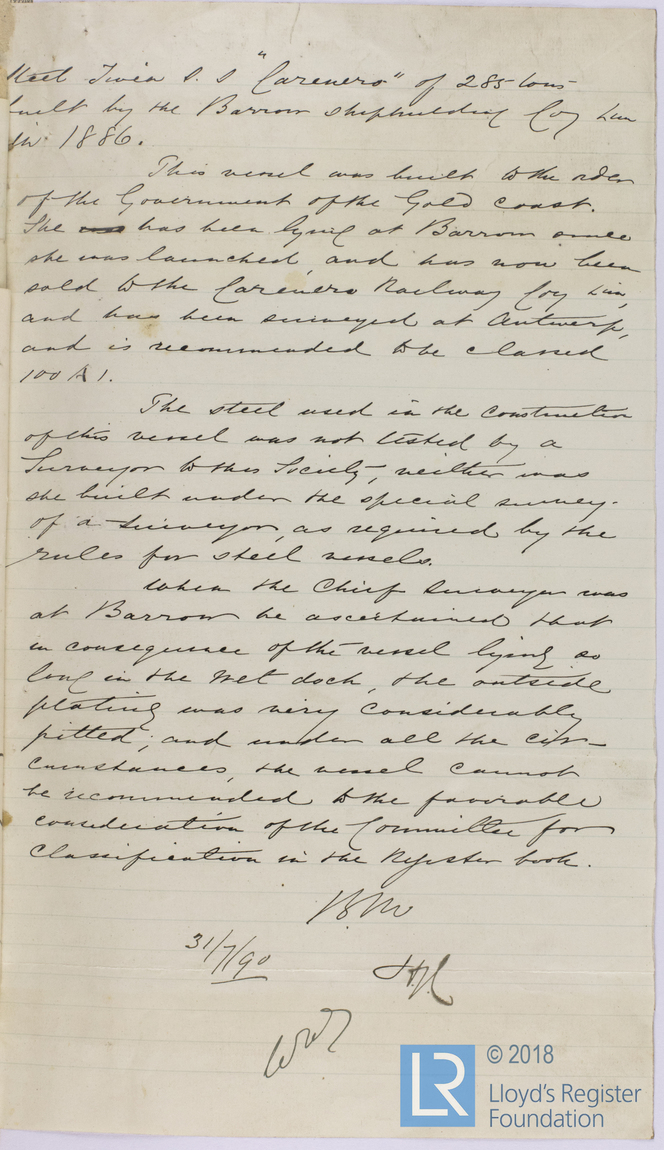 Steel Twin S. S "Carenero" of 285 tons
built by the Barrow Shipbuilding Coy Lim
in 1886.
This vessel was built to the order
of the Government of the Gold Coast.
She was has been lying at Barrow since
she was launched, and has now been
sold to the Carenero Railway Coy Lim,
and has been surveyed at Antwerp,
and is recommended to be classed
100 A 1.
The steel used in the construction
of this vessel was not tested by a
Surveyor to this Society, neither was
she built under the special survey
of a Surveyor, as required by the
rules for steel vessels.
When the Chief Surveyor was
at Barrow he ascertained that
in consequence of the vessel lying so
long in the wet dock, the outside
plating was very considerably
pitted; and under all the cir-
cumstances, the vessel cannot
be recommended to the favorable
consideration of the Committee for
classification in the Register book.
31/7/90
© 2018
LR
Lloyd's Register
Foundation